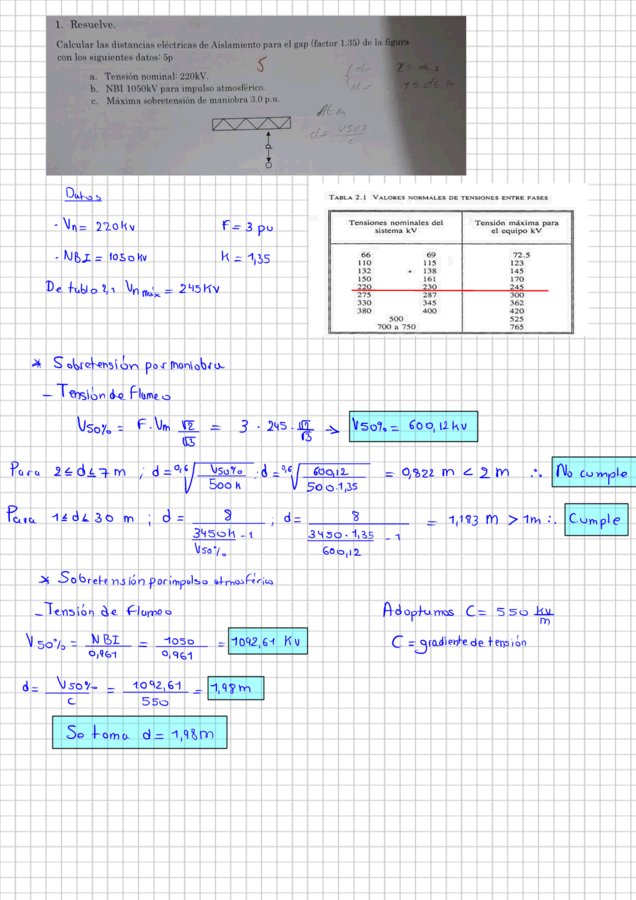 1. Resuelve.
Calcular las distancias eléctricas de Aislamiento para el gap (factor 1.35) de la figura
con los siguientes datos: 5p
5
a. Tensión nominal: 220kV.
b. NBI 1050kV para impulso atmosférico.
c. Máxima sobretensión de maniobra 3.0 p.u.
d
Atm
d = V50%/c
Datos
· Vn = 220kV
F = 3 pu
· NBI = 1050 kV
K = 1,35
De tabla 2,1 Vn máx = 245 KV
TABLA 2.1 VALORES NORMALES DE TENSIONES ENTRE FASES
Tensiones nominales del sistema kV | Tensión máxima para el equipo kV
66 69 72.5
110 115 123
132 138 145
150 161 170
220 230 245
275 287 300
330 345 362
380 400 420
500 525
700 a 750 765
* Sobretensión por maniobra
- Tensión de flameo
V50% = F · Vm √2/√3 = 3 · 245 · √2/√3 → V50% = 600,12 kV
Para 2 ≤ d ≤ 7 m ; d = 0,6√(V50%/500k) ; d = 0,6√(600,12/500·1,35) = 0,822 m < 2 m ∴ No cumple
Para 1 ≤ d ≤ 30 m ; d = 8/(3450k/V50% - 1) ; d = 8/(3450·1,35/600,12 - 1) = 1,183 m > 1m ∴ Cumple
* Sobretensión por impulso atmosférico
- Tensión de flameo
Adoptamos C = 550 kV/m
V50% = NBI/0,961 = 1050/0,961 = 1092,61 KV
C = gradiente de tensión
d = V50%/c = 1092,61/550 = 1,98 m
Se toma d = 1,98m